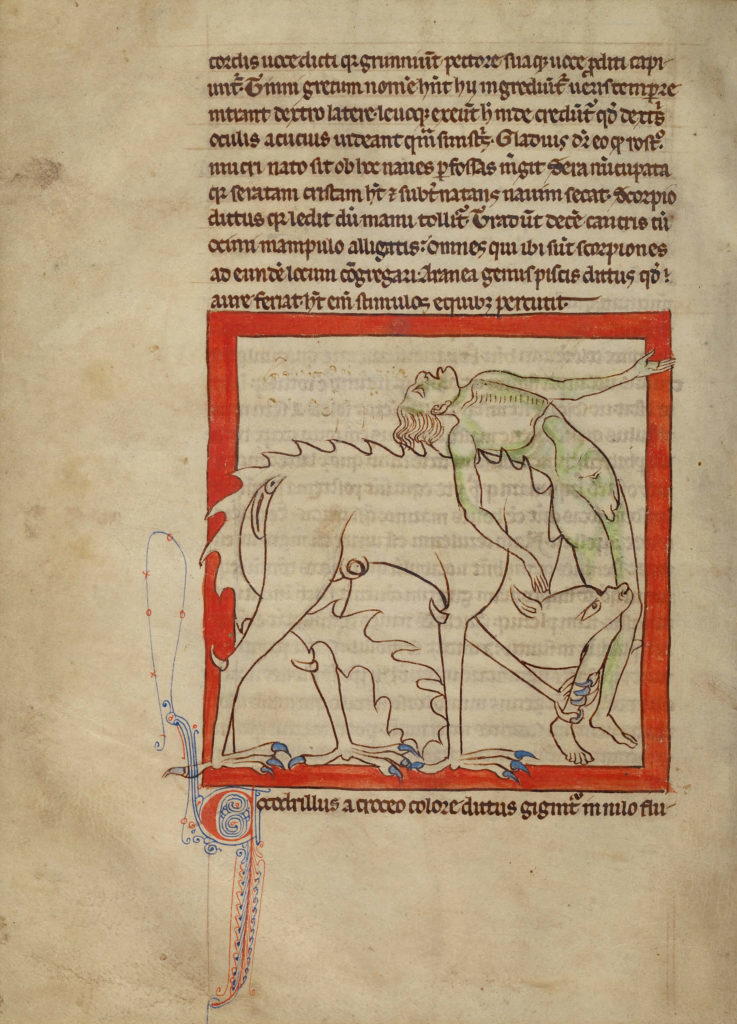 cordis uoce dicti qr grunniūt pectore sua qͥ uoce p̄diti capi-
unt̄. Tinni grecum nom̄e hn̄t hij ingrediūt̄ ueris tempr̄e
intrant dextro latere leuoqͥ exeūt h̄ inde credūt̄ qd̄ dextͥs
oculis acucius uideant qͣm sinistͥs. Gladius dr̄ eo qͥ rostͦ
mucronato sit ob hoc naues p̄fossas m̄git Serra nūcupata
qr seratam cristam ht̄ ⁊ subt̄ natans nauim secat. Scorpio
dictus qr ledit dū manu tollit̄. Tradūt decē cancris cū
ocimi manipulo alligatis: omnes qui ibi sūt scorpiones
ad eundē locum cōgregari. Aranea genus piscis dictus qd̄
aure feriat ht̄ em̄ stimulos equibꝫ percutit.
Cocodrillus a croceo colore dictus gignit̄ in nilo flu-